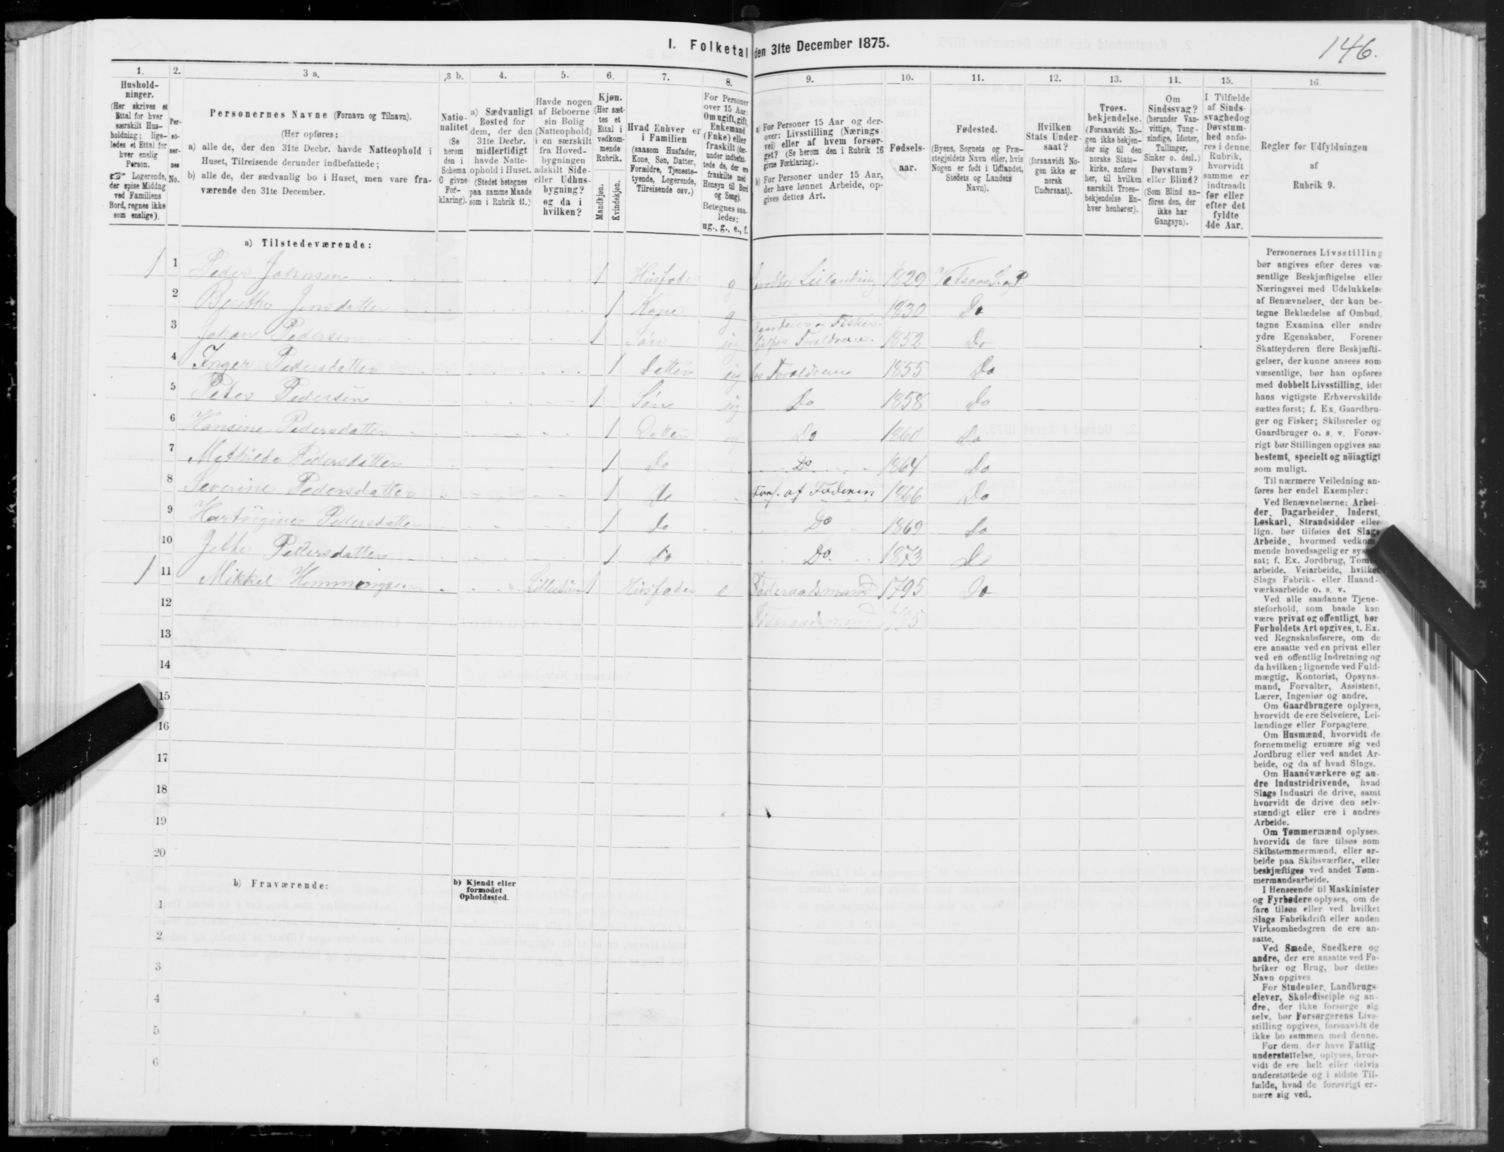 I. Folketal den 31te December 1875.
146.
1.
Hushold-
ninger.
(Her skrives et
Ettal for hver
særskilt Hus-
holdning; lige-
ledes et Ettal for
hver enslig
Person.
Logerende,
der spise Middag
ved Familiens
Bord, regnes ikke
som enslige).
2.
Per-
so-
ner-
nes
No.
3 a.
Personernes Navne (Fornavn og Tilnavn).
(Her opføres:
a) alle de, der den 31te Decbr. havde Natteophold i
Huset, Tilreisende derunder indbefattede;
b) alle de, der sædvanlig bo i Huset, men vare fra-
værende den 31te December.
3 b.
Natio-
nalitet
(Se
herom
den i
Schema
O givne
For-
klaring).
4.
a) Sædvanligt
Bosted for
dem, der den
31te Decbr.
midlertidigt
havde Natte-
ophold i Huset.
(Stedet betegnes
paa samme Maade
som i Rubrik 11.)
5.
Havde nogen
af Beboerne
sin Bolig
(Natteophold)
i en særskilt
fra Hoved-
bygningen
adskilt Side-
eller Udhus-
bygning?
og da i
hvilken?
6.
Kjøn.
(Her sæt-
tes et
Ettal i
vedkom-
mende
Rubrik.
Mandkjøn.
Kvindekjøn.
7.
Hvad Enhver er
i Familien
(saasom Husfader,
Kone, Søn, Datter,
Formidre, Tjeneste-
tyende, Logerende,
Tilreisende osv.)
8.
For Personer
over 15 Aar:
Om ugift, gift,
Enkemand
(Enke) eller
fraskilt
ug., g., e., f.
9.
a) For Personer 15 Aar og der-
over: Livsstilling (Nærings-
vei) eller af hvem forsør-
get? (Se herom den i Rubrik 16
givne Forklaring).
b) For Personer under 15 Aar,
der have lønnet Arbeide, op-
gives dettes Art.
10.
Fødsels-
aar.
11.
Fødested.
(Byens, Sognets og Præ-
stegjeldets Navn eller, hvis
Nogen er født i Udlandet,
Stedets og Landets
Navn).
12.
Hvilken
Stats Under-
saat?
(forsaavidt No-
gen ikke er
norsk
Undersaat).
13.
Troes-
bekjendelse.
(Forsaavidt No-
gen ikke bekjen-
der sig til den
norske Stats-
kirke, anføres
her, til hvilken
særskilt Troes-
bekjendelse En-
hver henhører).
11.
Om
Sindssvag?
(herunder Van-
vittige, Tung-
sindige, Idioter,
Tullinger,
Sinker o. desl.)
Døvstum?
eller Blind?
(Som Blind an-
føres den, der
ikke har
Gangsyn).
15.
I Tilfælde
af Sinds-
svaghed og
Døvstum-
hed anfø-
res i denne
Rubrik,
hvorvidt
samme er
indtraadt
før eller
efter det
fyldte
4de Aar.
16.
Regler for Udfyldningen
af
Rubrik 9.
a) Tilstedeværende:
1 1 Peder Johnsen 1 Husfader g Leilænding 1829
2 Berithe Jonsdatter 1 Kone g 1830 Do
3 Johan Pedersen 1 Søn ug Forældrene 1852 Do
4 Inger Pedersdatter 1 Datter ug Forældrene 1855 Do
5 Peder Pedersen 1 Søn ug Do 1858 Do
6 Hansine Pedersdatter 1 Datter Do 1860 Do
7 Mathilde Pedersdatter 1 Do Do 1864 Do
8 Severine Pedersdatter 1 Do Fors. af Faderen 1866 Do
9 Pedersdatter 1 Do Do 1869 Do
10 Pedersdatter 1 Do Do 1873 Do
1 11 Mikkel Hemmingsen 1 Husfader e Føderaadsmand 1795 Do
12
13
14
15
16
17
18
19
20
b) Fraværende:
b) Kjendt eller
formodet
Opholdssted.
1
2
3
4
5
6
Personernes Livsstilling
bør angives efter deres væ-
sentlige Beskjæftigelse eller
Næringsvei med Udelukkelse
af Benævnelser, der kun be-
tegne Beklædelse af Ombud,
tagne Examina eller andre
ydre Egenskaber. Forener
Skatteyderen flere Beskjæfti-
gelser, der kunne ansees som
væsentlige, bør han opføres
med dobbelt Livsstilling, idet
hans vigtigste Erhvervskilde
sættes først; f. Ex. Gaardbru-
ger og Fisker; Skibsreder og
Gaardbruger o. s. v. Forøv-
rigt bør Stillingen opgives saa
bestemt, specielt og nöiagtigt
som muligt.
Til nærmere Veiledning an-
føres her endel Exempler:
Ved Benævnelserne: Arbei-
der, Dagarbeider, Inderst,
Løskarl, Strandsidder eller
lign. bør tilføies det Slags
Arbeide, hvormed vedkom-
mende hovedsagelig er syssel-
sat; f. Ex. Jordbrug, Tomte-
arbeide, Veiarbeide, hvilket
Slags Fabrik- eller Haand-
værksarbeide o. s. v.
Ved alle saadanne Tjene-
steforhold, som baade kan
være privat og offentligt, bør
Forholdets Art opgives, t. Ex.
ved Regnskabsførere, om de
ere ansatte ved en privat eller
ved en offentlig Indretning og
da hvilken; lignende ved Fuld-
mægtig, Kontorist, Opsyns-
mand, Forvalter, Assistent,
Lærer, Ingeniør og andre.
Om Gaardbrugere oplyses,
hvorvidt de ere Selveiere, Lei-
lændinge eller Forpagtere.
Om Husmænd, hvorvidt de
fornemmelig ernære sig ved
Jordbrug eller ved andet Ar-
beide, og da af hvad Slags.
Om Haandværkere og an-
dre Industridrivende, hvad
Slags Industri de drive, samt
hvorvidt de drive den selv-
stændigt eller ere i andres
Arbeide.
Om Tømmermænd oplyses,
hvorvidt de fare tilsøs som
Skibstømmermænd, eller ar-
beide paa Skibsværfter, eller
beskjæftiges ved andet Tøm-
mermandsarbeide.
I Henseende til Maskinister
og Fyrbødere oplyses, om de
fare tilsøs eller ved hvilket
Slags Fabrikdrift eller anden
Virksomhedsgren de ere an-
satte.
Ved Smede, Snedkere og
andre, der ere ansatte ved Fa-
briker og Brug, bør dettes
Navn opgives
For Studenter, Landbrugs-
elever, Skoledisciple og an-
dre, der ikke forsørge sig
selv, bør Forsørgerens Livs-
stilling opgives, forsaavidt de
ikke bo sammen med denne.
For dem, der have Fattig-
understøttelse, oplyses, hvor-
vidt de ere helt eller delvis
understøttede og i sidste Til-
fælde, hvad de forøvrigt er-
nære sig ved.